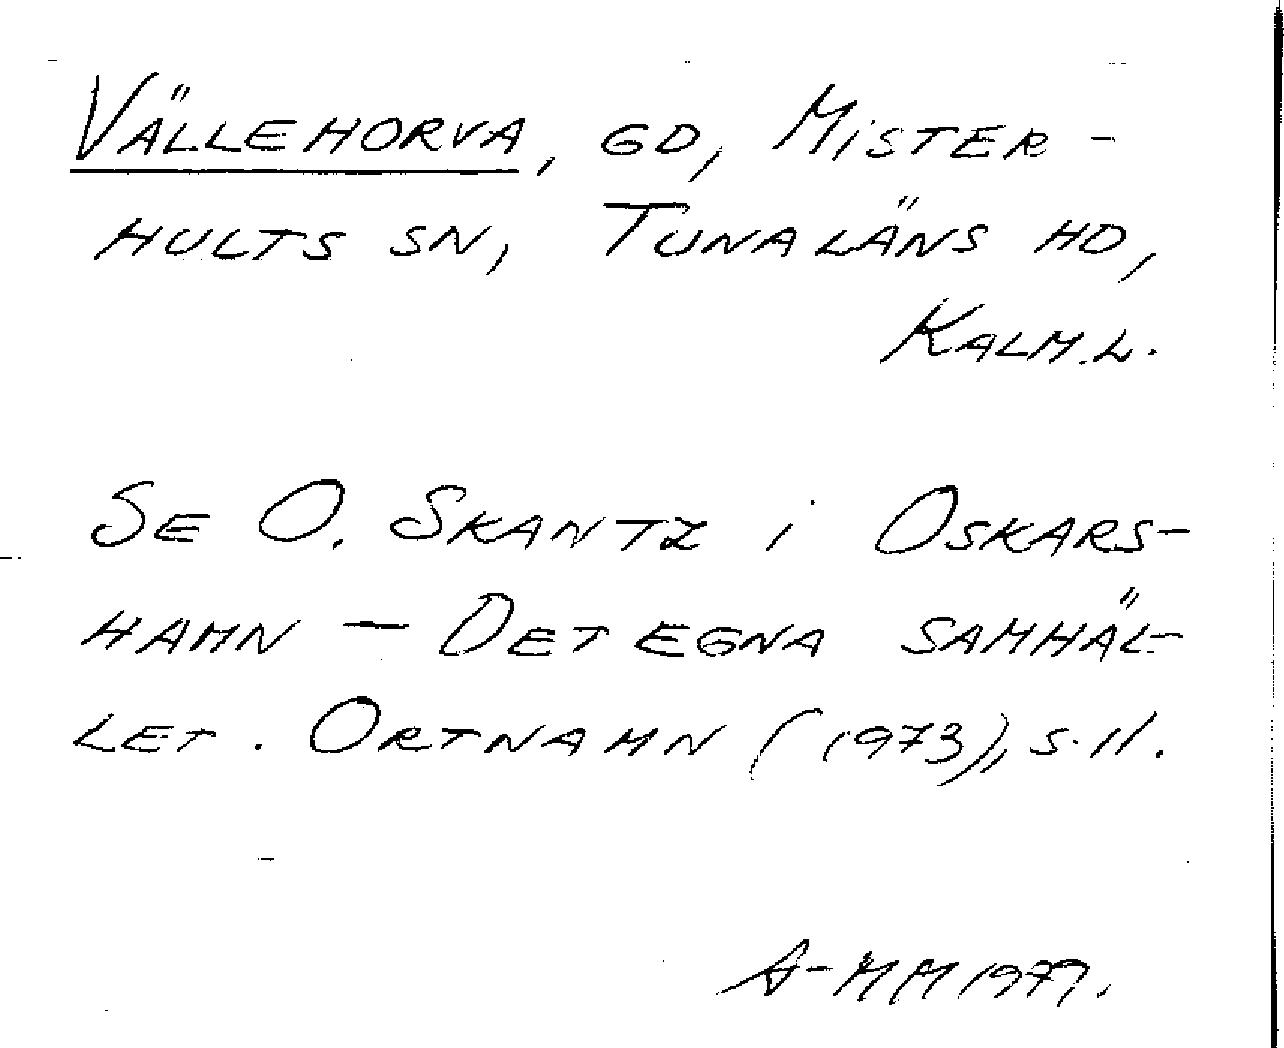 VÄLLEHORVA, GD, MISTER-
HULTS SN, TUNALÄNS HD,
KALM.L.
SE O. SKANTZ i OSKARS-
HAMN – DET EGNA SAMHÄL-
LET. ORTNAMN (1973), S. 11.
A-MM 1979.